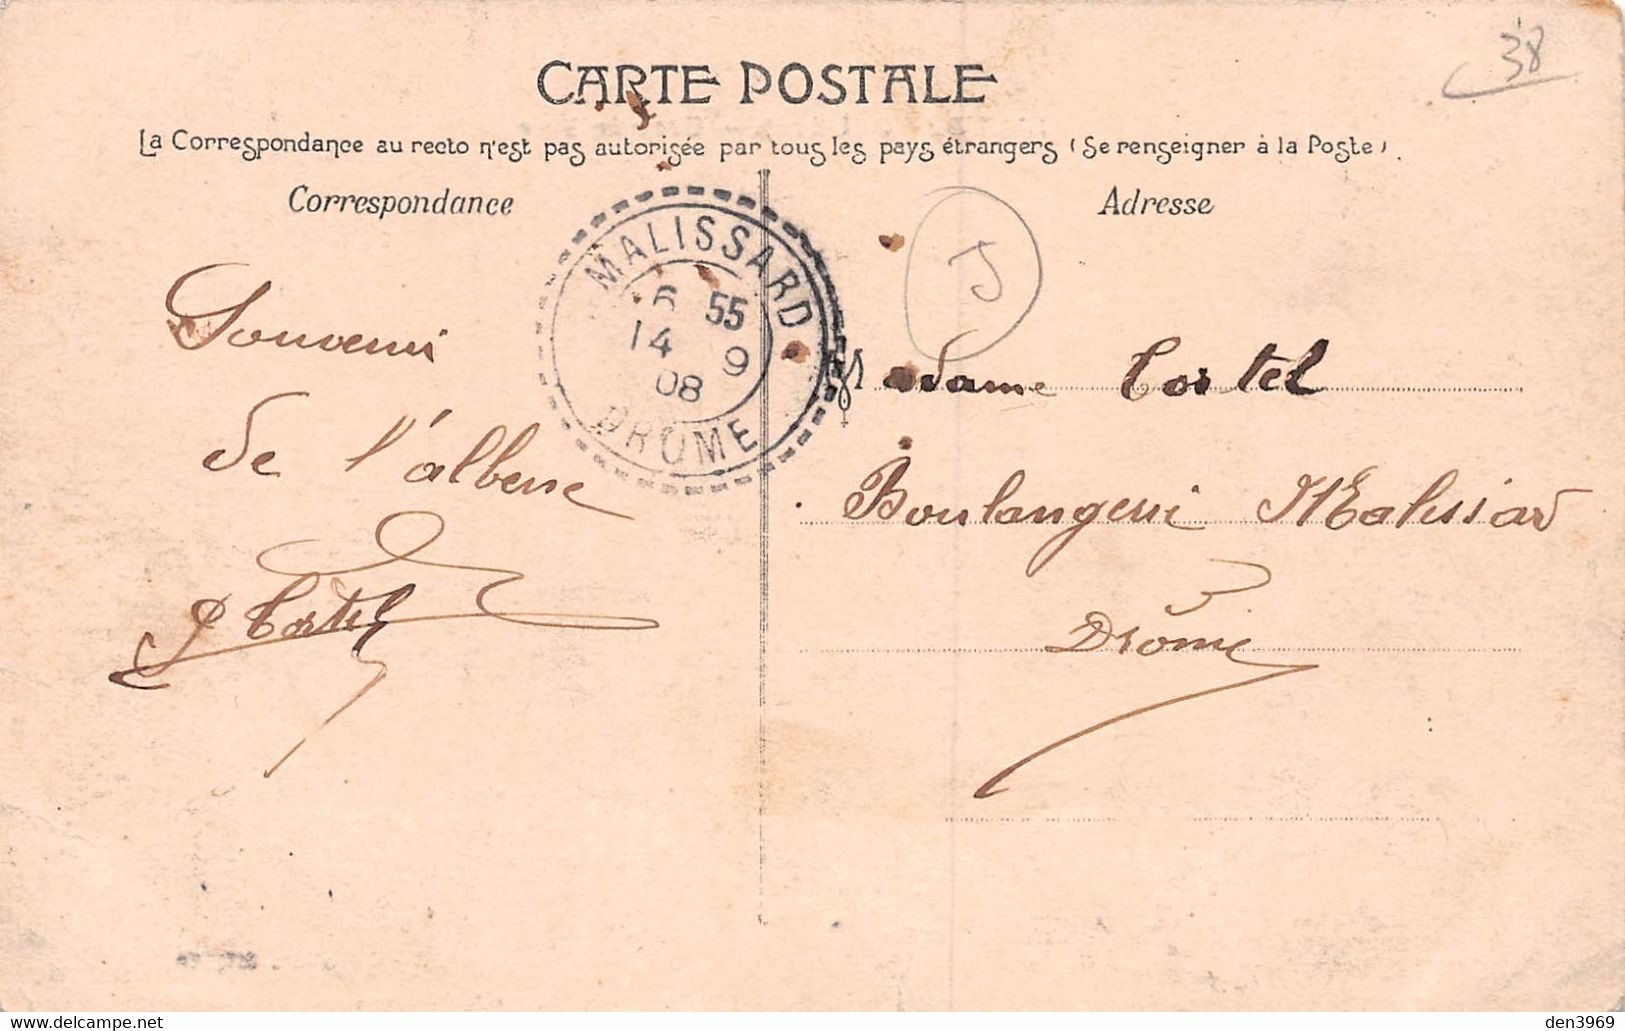 38
CARTE POSTALE
La Correspondance au recto n'est pas autorisée par tous les pays étrangers (Se renseigner à la Poste)
Correspondance
Adresse
MALISSARD
6 55
14 9
08
DROME
J
Souvenir
de l'albenc
P Tortel
Madame Tortel
Boulangerie Malissard
Drôme
den3969